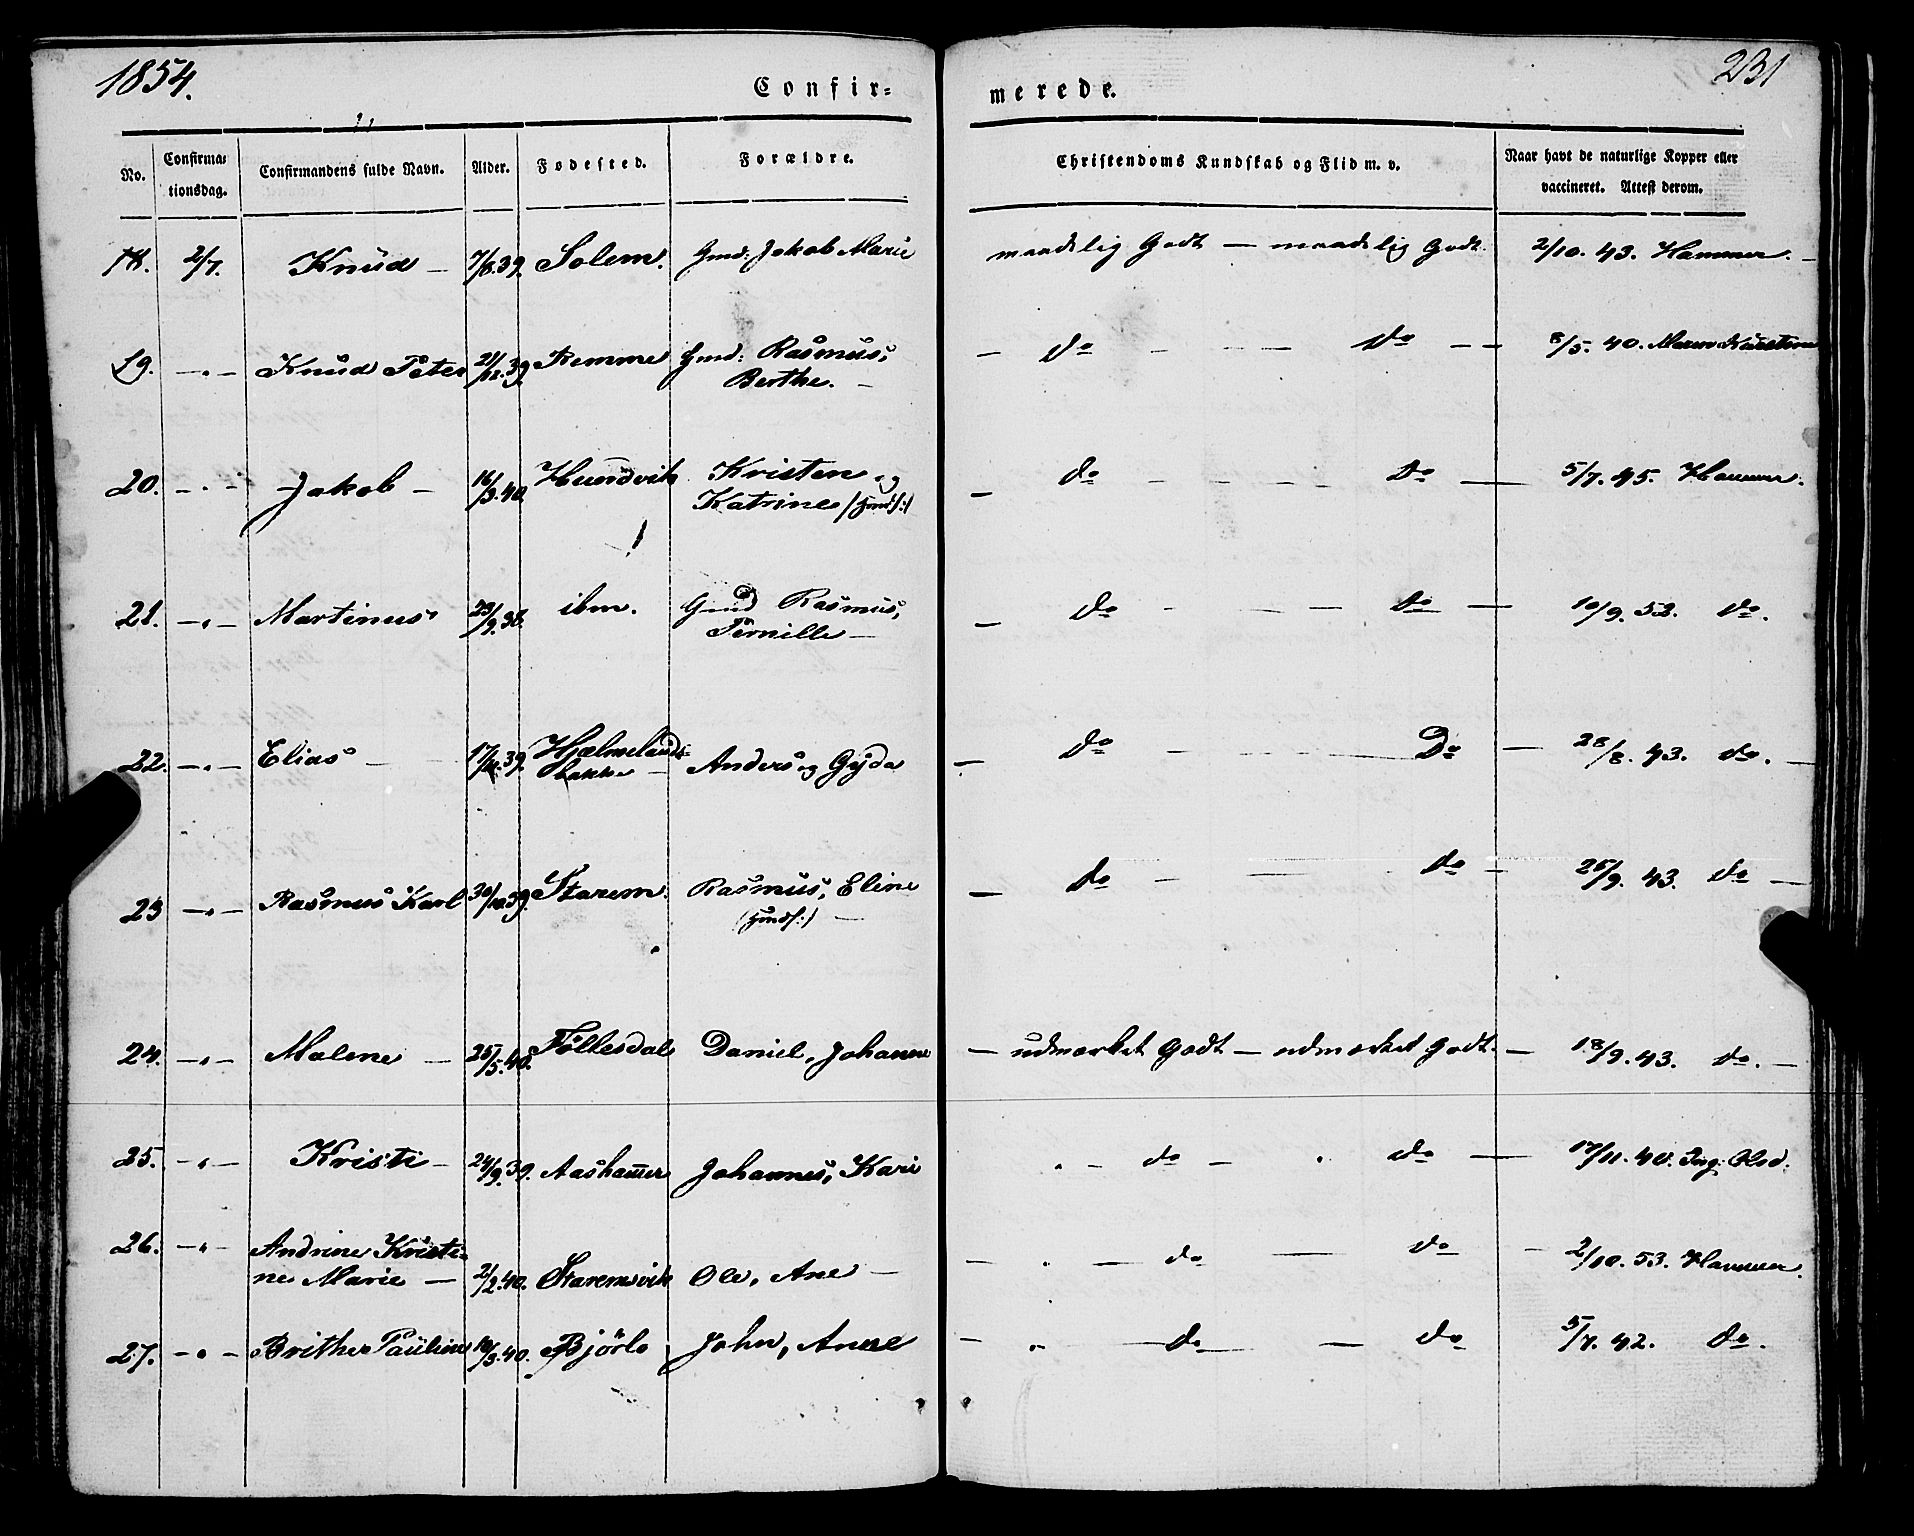 1854.
231
Confir=
merede.
No. Confirma= tionsdag. Confirmandens fulde Navn. Alder. Fødested. Forældre. Christendoms Kundskab og Flid m. v. Naar havt de naturlige Kopper eller vaccineret. Attest derom.
18. 2/7. Knud — 7/8.39. Solem. Gmd: Jakob Marie maadelig Godt — maadelig Godt. 2/10. 43. Hammer. —
19. —„— Knud Peter 21/12.39. Remme Gmd: Rasmus, — do — — — do — — 8/5. 40.
Berthe. —
20. —„— Jakob — 16/3.40. Hundvik Kristen og — do — — — do — 5/7. 45. Hammer.
Katrine (Gmdf:)
21. —„— Martinus 23/9.38. ibm. Gmd Rasmus, — do — — do — 10/9. 53. do.
Pernille —
22. —„— Elias — 17/11.39. Hjælmelands= — do — — Do — 28/8. 43. do. —
bakke — Anders og Gyda
23 —„— Rasmus Karl 30/10.39. Starem. Rasmus, Eline — do — — do — 25/9. 43. do —
(Gmdf:) —
24. —„— Malene — 25/5.40. Föllesdal Daniel, Johanne — udmærket Godt — udmærket Godt. — 18/9. 43. do. —
25. —„— Kristi — 24/9.39. Aashamer Johannes, Kari „ — do — „ do — 17/11. 40.
26. —„— Andrine Kristi=
ne Marie — 2/2.40. Staremsvik Ole, Ane — — „ — do — do — 2/10. 53. Hammer.
27. —„— Brithe Pauline 10/3.40. Bjórlo John, Anne — „ — do — do 5/7. 42. do.